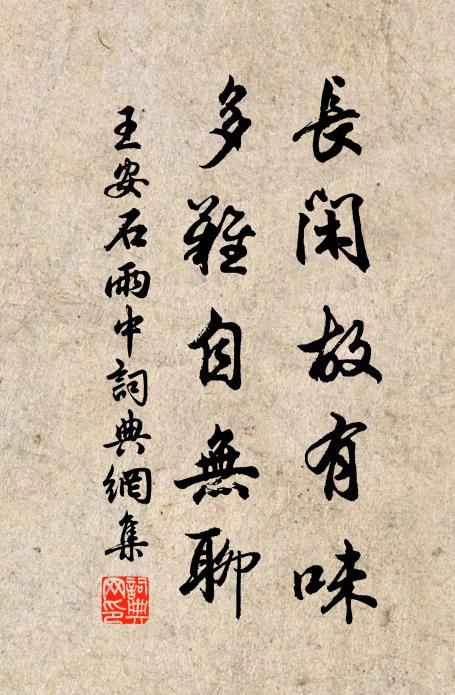 長閑故有味
多難自無聊
王安石雨中詞典網集
詞典
网印